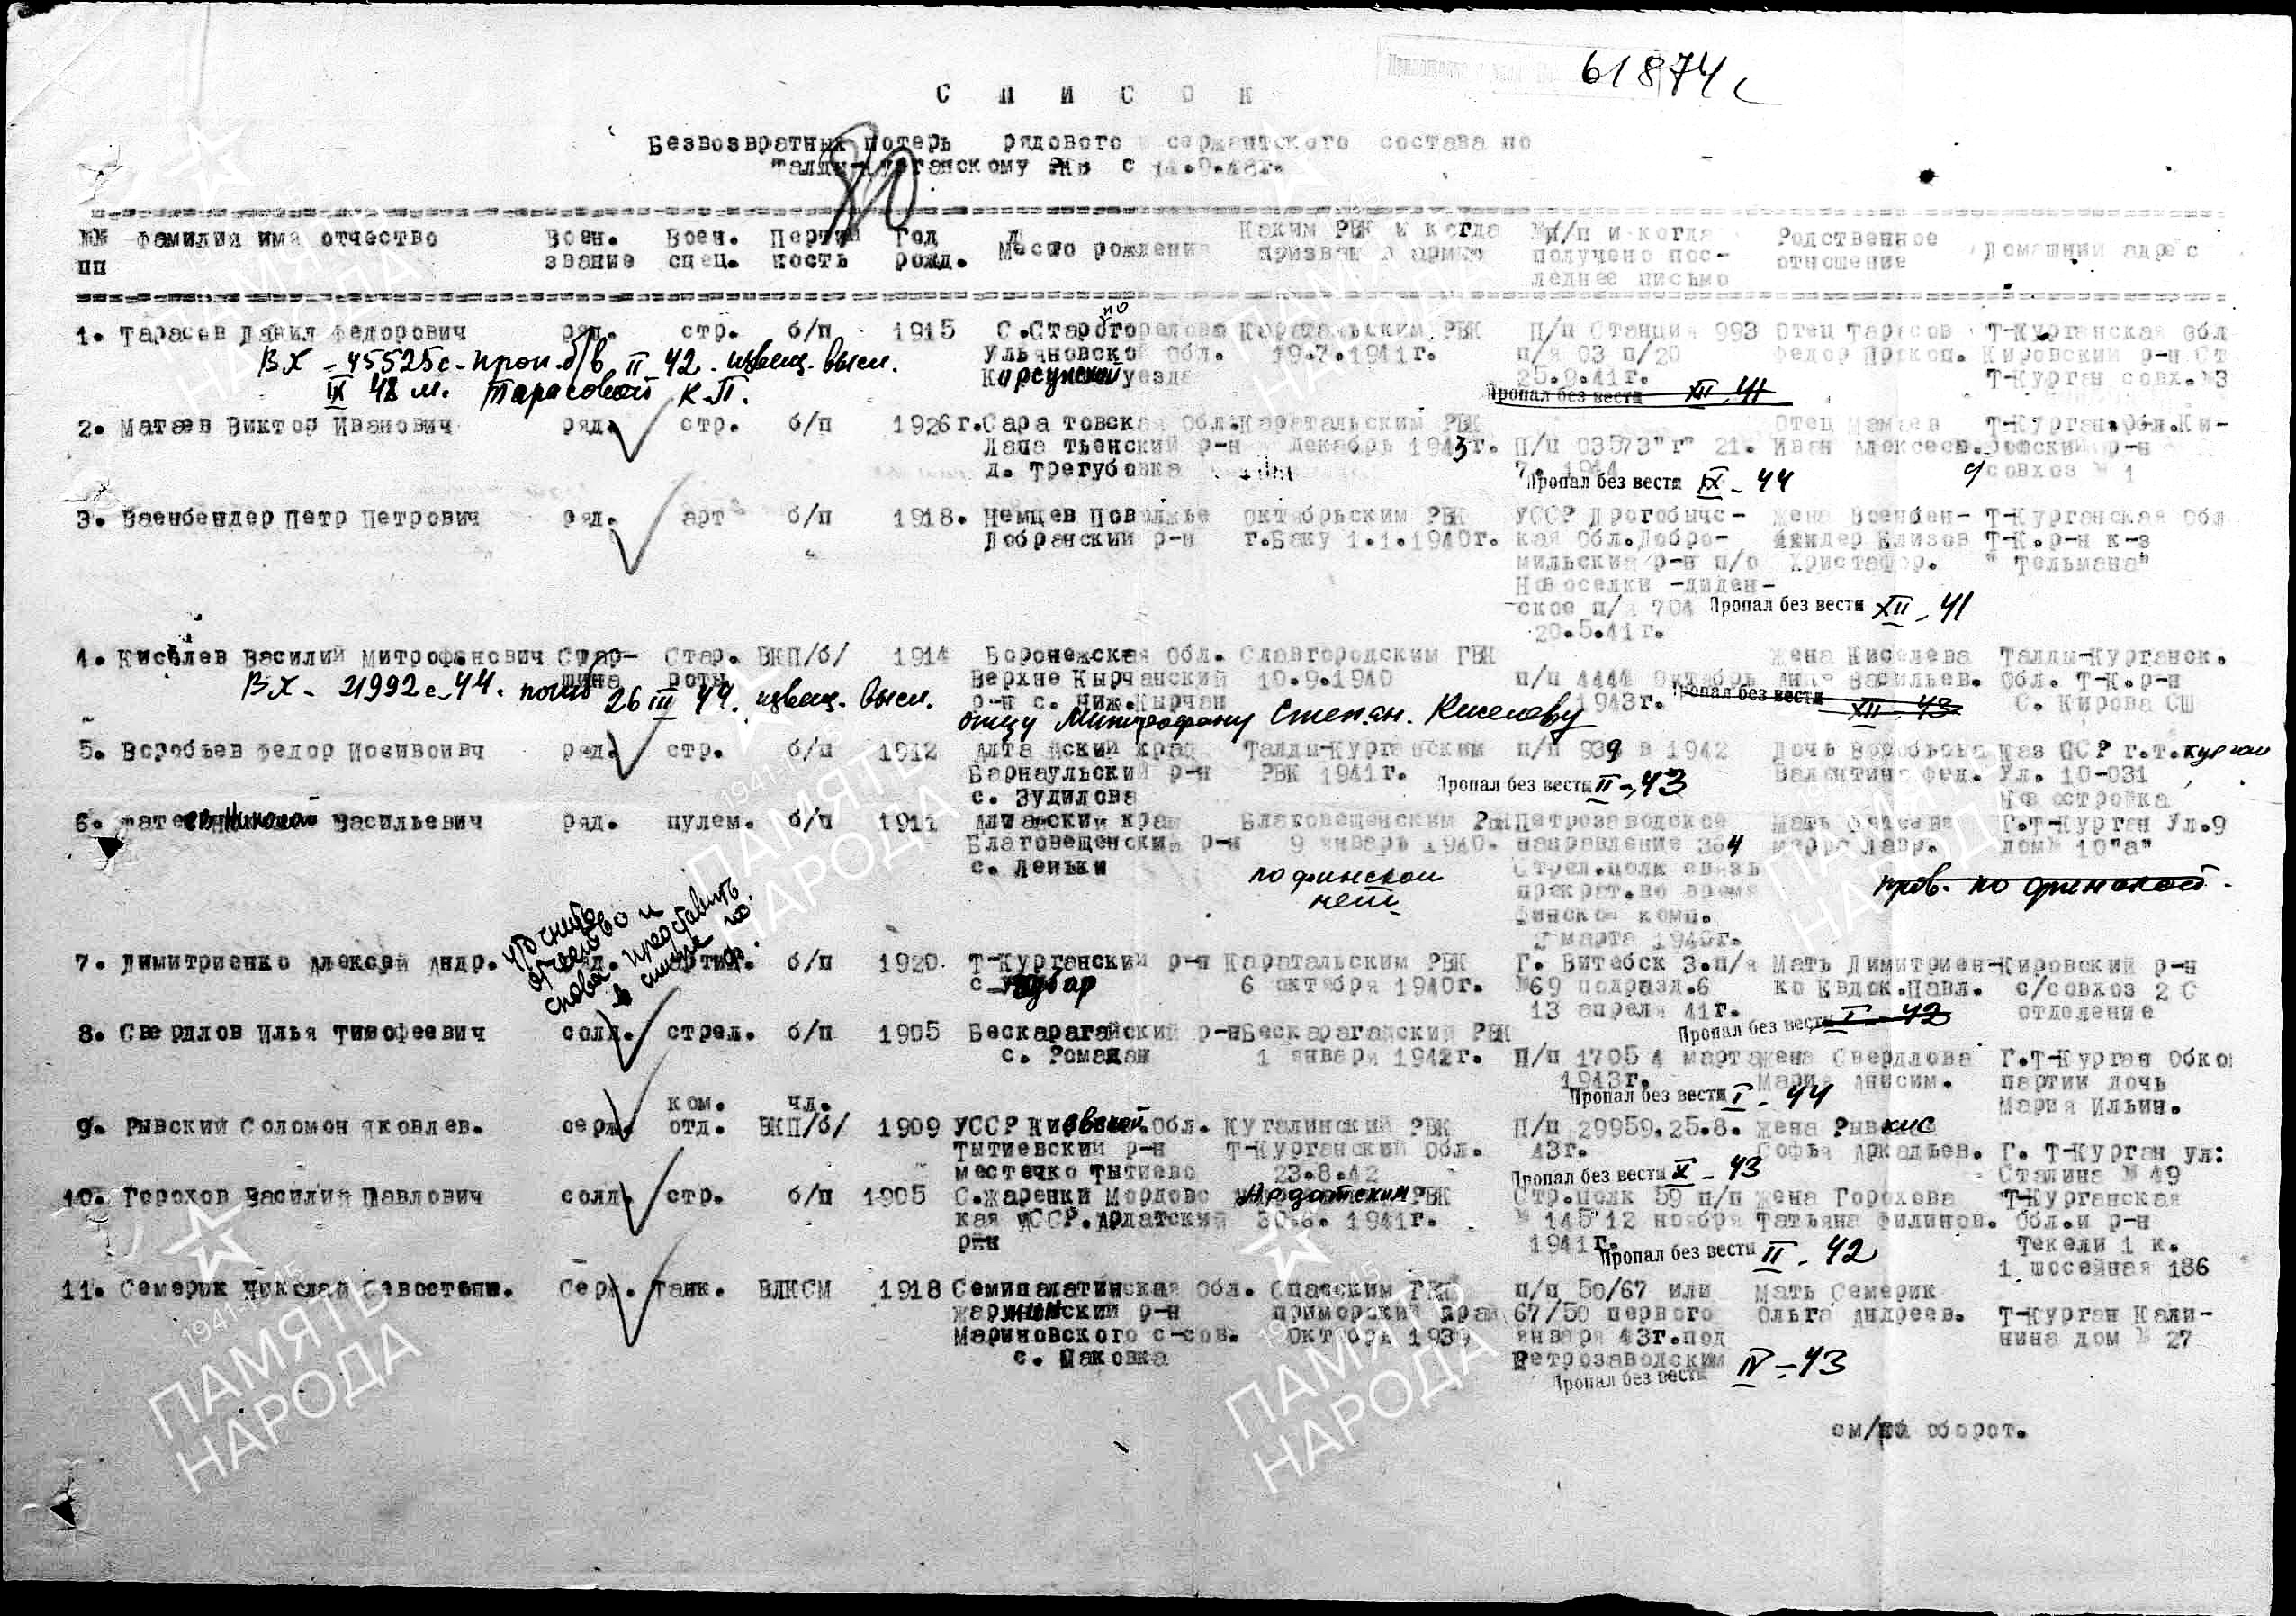 61874с
С П И С О К
Безвозвратных потерь рядового и сержантского состава по
Талды-Курганскому с
80
№№ фамилия имя отчество Воен. Воен. Партий Год Место рождения Каким РВК и когда №п/п и когда Родственное Домашний адрес
пп звание спец. ность рожд. призван в армию получено пос- отношение
леднее письмо
1. Тарасов Данил Федорович ряд. стр. б/п 1915 Каратальским РВК П/п Станция 993 Отец Тарасов Т-Курганская обл
Ульяновской обл. 19.7.1941г. п/я 03 п/20 Федор Прокоп. Кировский р-н Ст
уезда 25.9.41г. Т-Курган совх. №3
ВХ - 45525с - проп. б/в II - 42. извещ. высл.
IX 48 м. Тарасовой К.П.
Пропал без вести XII 41
2. Матаев Виктор Иванович ряд. стр. б/п 1926г. Саратовская обл. Каратальским РВК Отец Мамаев Т-Курган.Обл.Ки-
р-н декабрь 1943г. П/п 03573"г" 21. Иван Алексеев. ровский р-н
д. Трегубовка совхоз № 1
Пропал без вести IX - 44
3. Ваенбендер Петр Петрович ряд. арт б/п 1918. Немцев Поволжье октябрьским РВК УССР Дрогобычс- жена Военбен- Т-Курганская обл
Добранский р-н г.Баку 1.1.1940г. кая обл.Добро- Т-К.р-н к-з
мильский р-н п/о Христафор. "Тельмана"
Новоселки -лиден-
ское п/я 704 Пропал без вести XII - 41
20.5.41г.
4. Киселев Василий Митрофанович Стар- Стар. ВКП/б/ 1914 Воронежская обл. Славгородским ГВК жена Киселева Талды-Курганск.
шина роты Верхне Кырчанский 10.9.1940 п/п 4444 Октябрь Васильев. Обл. Т-К.р-н
р-н с. Ниж.Кырчан 1943г. С. Кирова СШ
ВХ - 21992с - 44. погиб 26 III 44. извещ. высл. отцу Митрофану Степан. Киселеву
Пропал без вести XII - 43
5. Воробьев Федор ряд. стр. б/п 1912 Алтайский край Талды-Курганским п/п 939 в 1942 Дочь Воробьева Каз ССР г.Т.Курган
Барнаульский р-н РВК 1941г. Валентина Фед. Ул. 10-031
с. Зудилова Пропал без вести II - 43 Новостройка
6. Фатеев Николай Васильевич ряд. пулем. б/п 1911 Алтайский край Благовещенским РВК Петрозаводское Мать Фатеева Г.Т-Курган Ул.9
Благовещенский р-н 9 январь 1940. направление 364 Лавр. дом№ 10"а"
с. Леньки Стрел.полк связь
по финской прекрат.во время прив. по финской.
нет финской комп.
марта 1940г.
уточнить
отчество и
снова представить
в
7. Димитриенко Алексей Андр. б/п 1920. Т-Курганский р-н Каратальским РВК Г. Витебск 3.п/я Мать Димитриен- Кировский р-н
6 октября 1940г. №69 подразд.6 ко Евдок.Павл. с/совхоз 2 С
13 апреля 41г. отделение
Пропал без вести I - 42
8. Свердлов Илья Тимофеевич солд. стрел. б/п 1905 Бескарагайский р-н Бескарагайский РВК
с. Романан 1 января 1942г. П/п 1705 4 марта жена Свердлова Г.Т-Курган Обко
1943г. Мария Анисим. партии дочь
Пропал без вести I - 44 Мария Ильин.
ком. чл.
9. Рывский Соломон Яковлев. серж. отд. ВКП/б/ 1909 УССР Киевской Обл. Кугалинский РВК П/п 29959.25.8. жена Рывкис
Тытиевский р-н Т-Курганской Обл. 43г. Софья Аркадьев. Г. Т-Курган ул:
местечко Тытиево 23.8.42 Пропал без вести X - 43 Сталина № 49
10. Горохов Василий Павлович солд. стр. б/п 1905 С.жаренки Мордовс Ардатским РВК Стр.полк 59 п/п жена Горохова Т-Курганская
кая АССР.Ардатский 30.6. 1941г. № 145 12 ноября Татьяна Филипов. Обл.и р-н
р-н 1941г. Пропал без вести II - 42 Текели 1 к.
1 шосейная 186
11. Семерик Николай Севостепн. Серж. Танк. ВЛКСМ 1918 Семипалатинская Обл. Спасским РВК п/п 50/67 или Мать Семерик
жарминский р-н приморский край 67/50 первого Ольга Андреев. Т-Курган Кали-
Мариновского с-сов. Октябрь 1939 января 43г.под нина дом № 27
с. Паковка Петрозаводским IV - 43
Пропал без вести
см/на оборот.
1941-1945
ПАМЯТЬ
НАРОДА